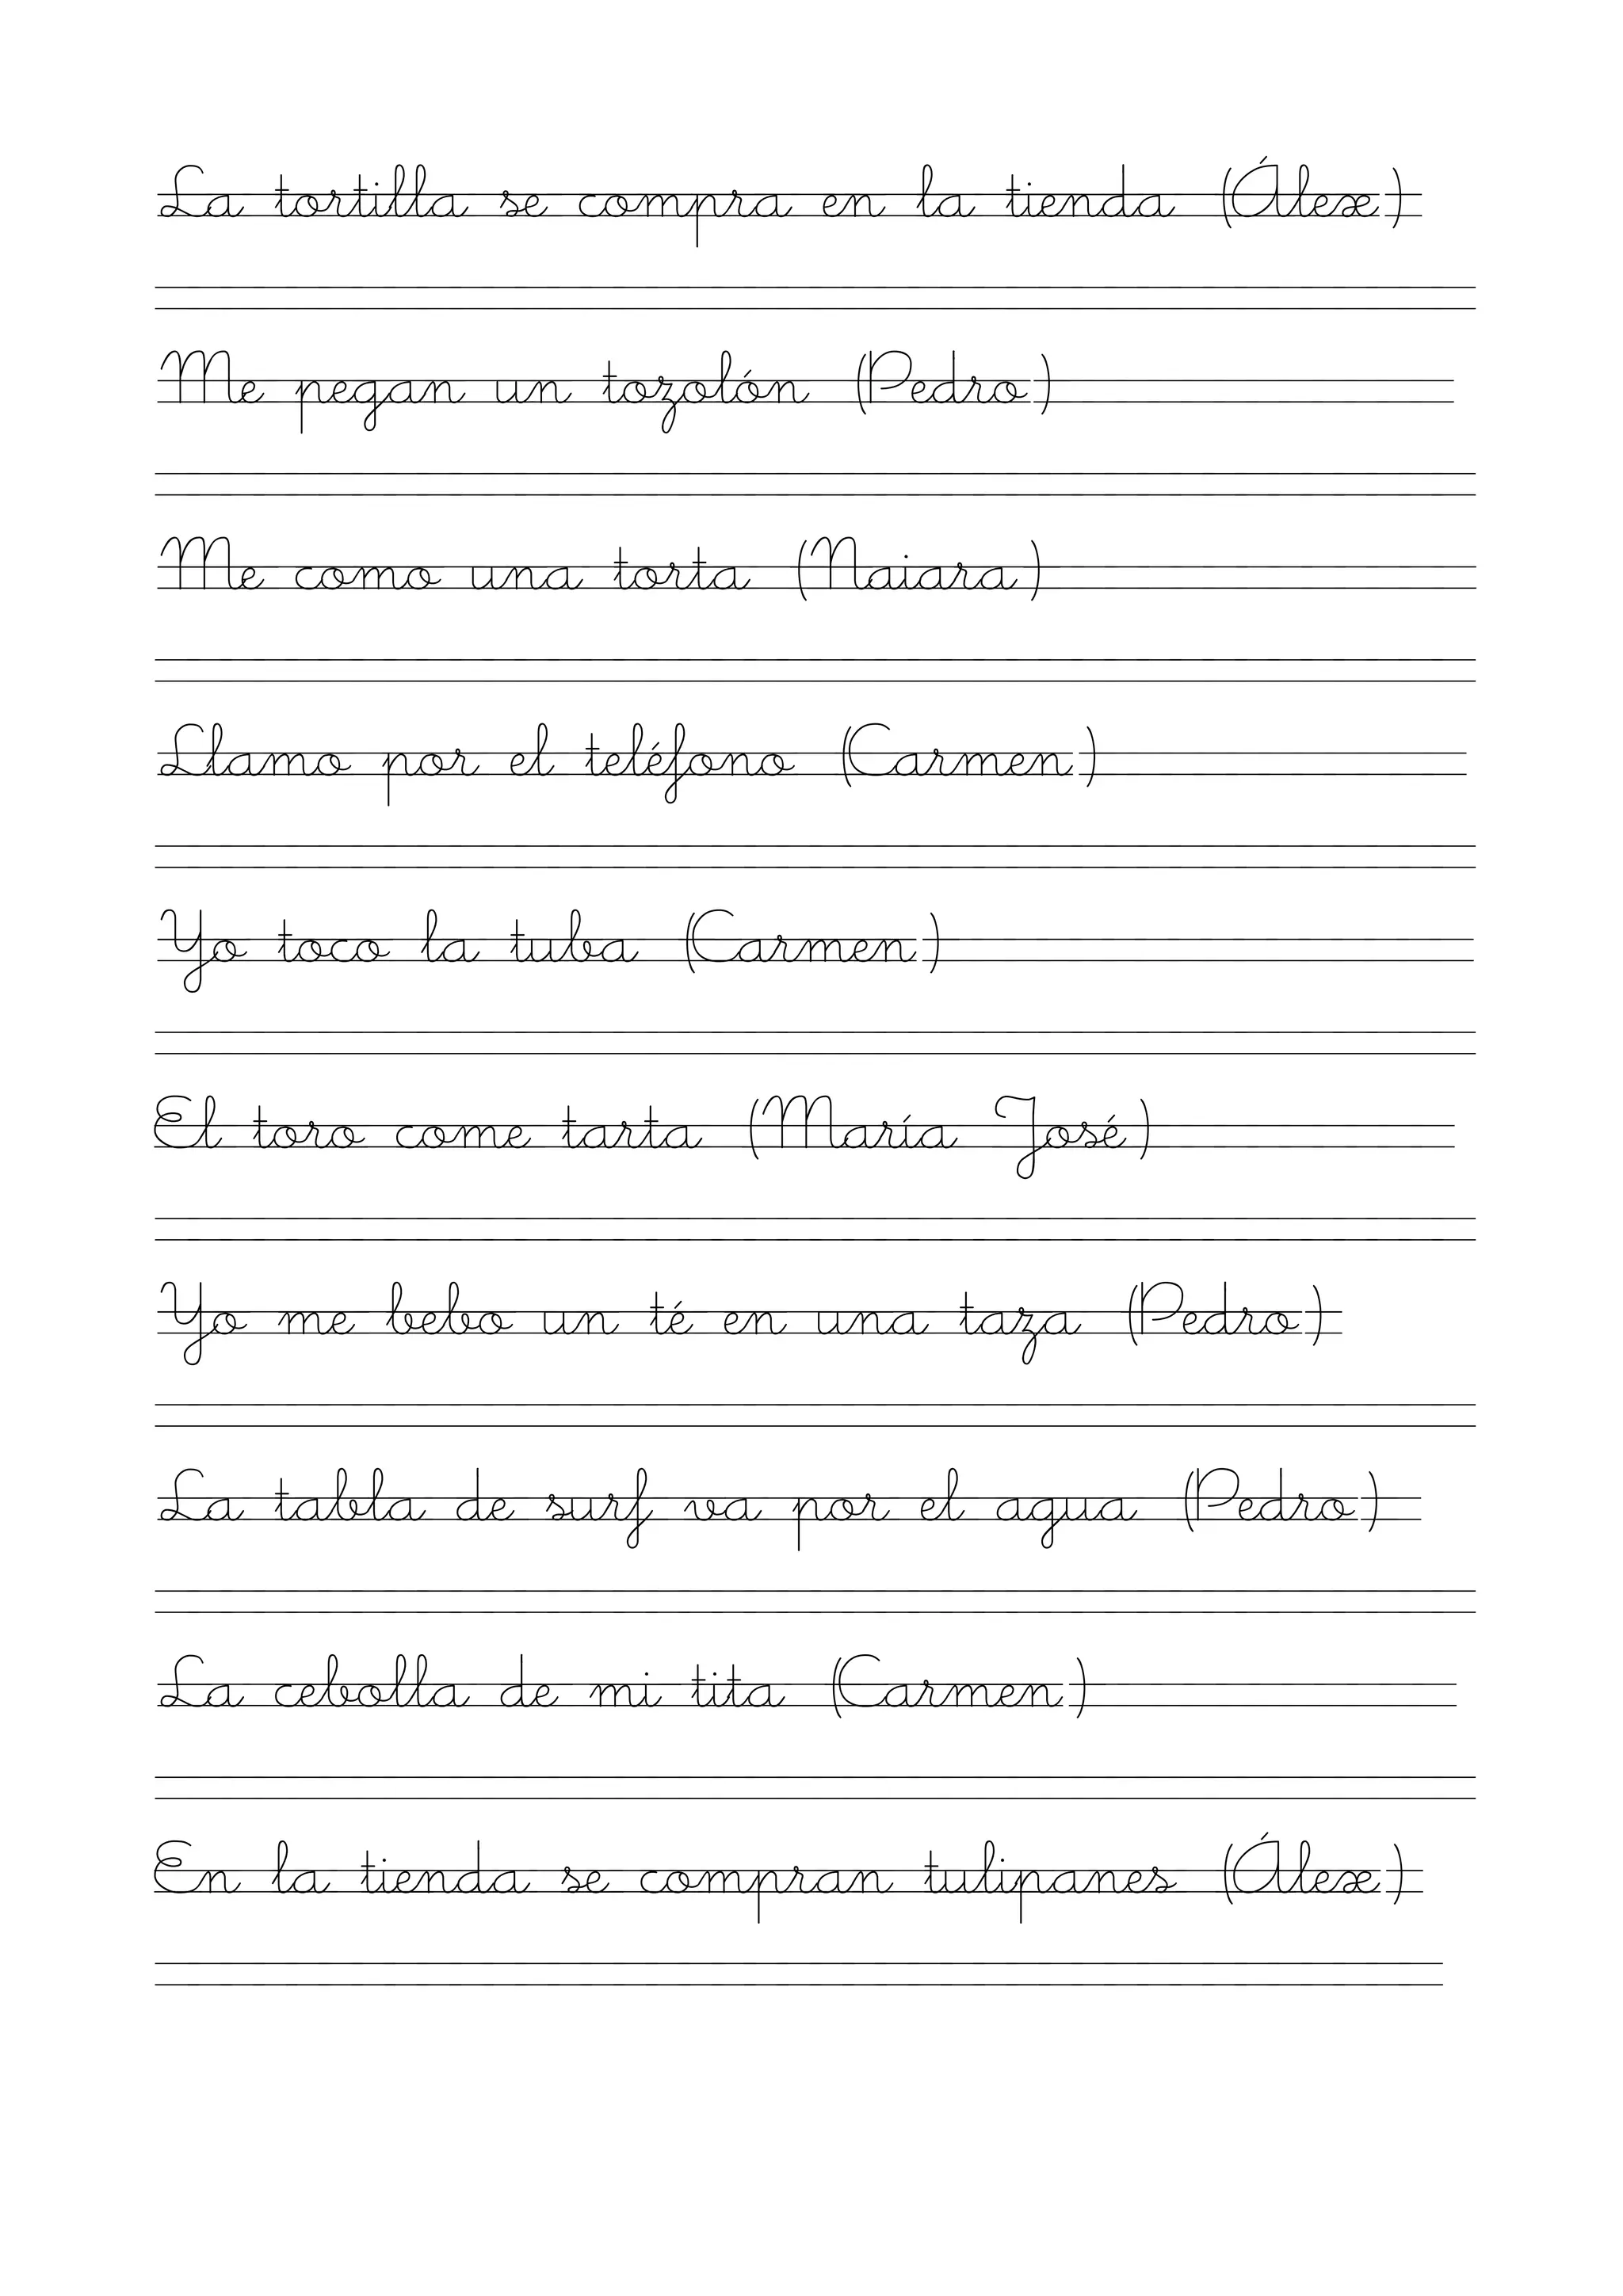 La tortilla se compra en la tienda (Álex)
Me pegan un tozolón (Pedro)
Me como una torta (Naiara)
Llamo por el teléfono (Carmen)
Yo toco la tuba (Carmen)
El toro come tarta (María José)
Yo me bebo un té en una taza (Pedro)
La tabla de surf va por el agua (Pedro)
La cebolla de mi tita (Carmen)
En la tienda se compran tulipanes (Álex)